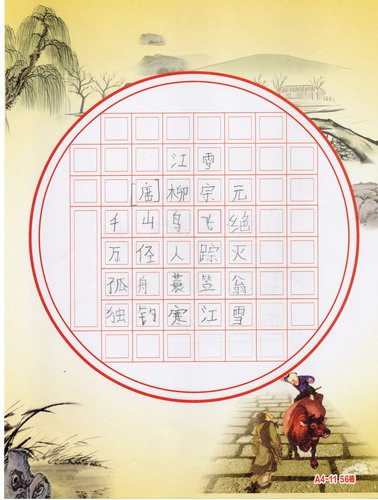 江雪
[唐]柳宗元
千山鸟飞绝
万径人踪灭
孤舟蓑笠翁
独钓寒江雪
A4-11 56格